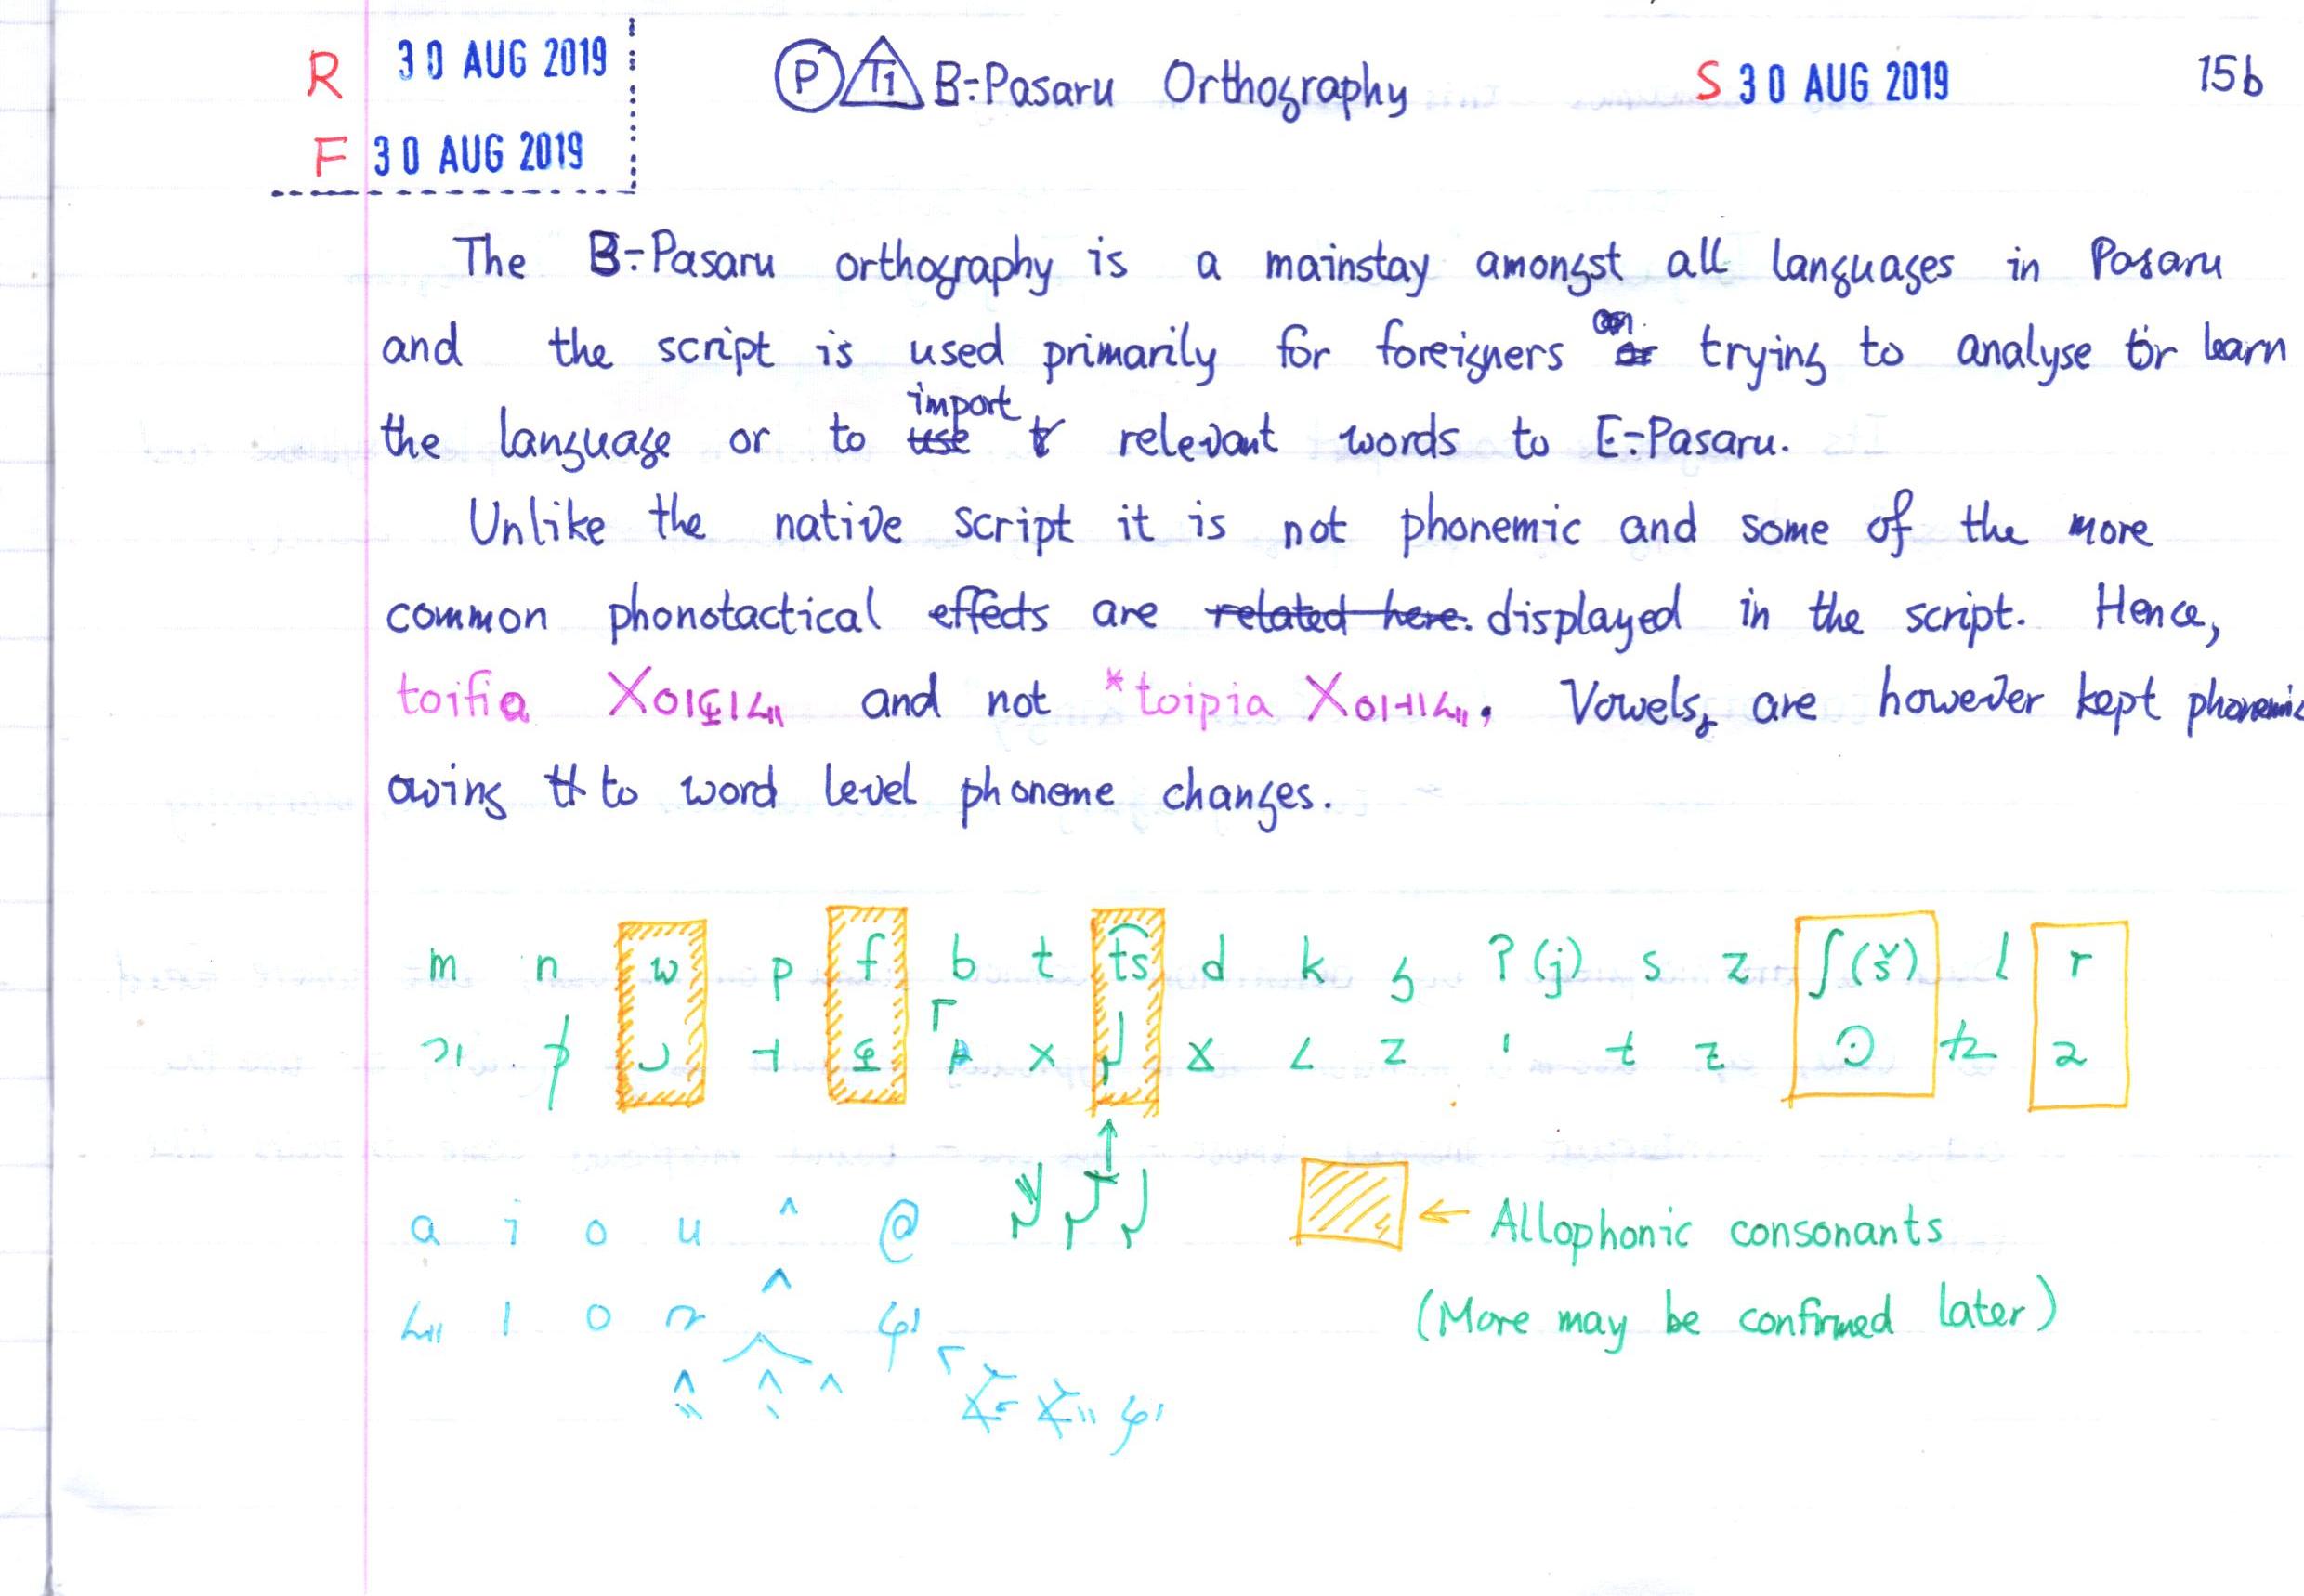 R 30 AUG 2019
F 30 AUG 2019
P T1 B-Pasaru Orthography S 30 AUG 2019 15b
The B-Pasaru orthography is a mainstay amongst all languages in Pasaru
and the script is used primarily for foreigners trying to analyse or learn
the language or to import relevant words to E-Pasaru.
Unlike the native script it is not phonemic and some of the more
common phonotactical effects are related here. displayed in the script. Hence,
toifia and not *toipia . Vowels, are however kept phonemic
owing to word level phoneme changes.
m n w p f b t t͡s d k g ? (j) s z ʃ(š) l r
a i o u ^ @
← Allophonic consonants
(More may be confirmed later)